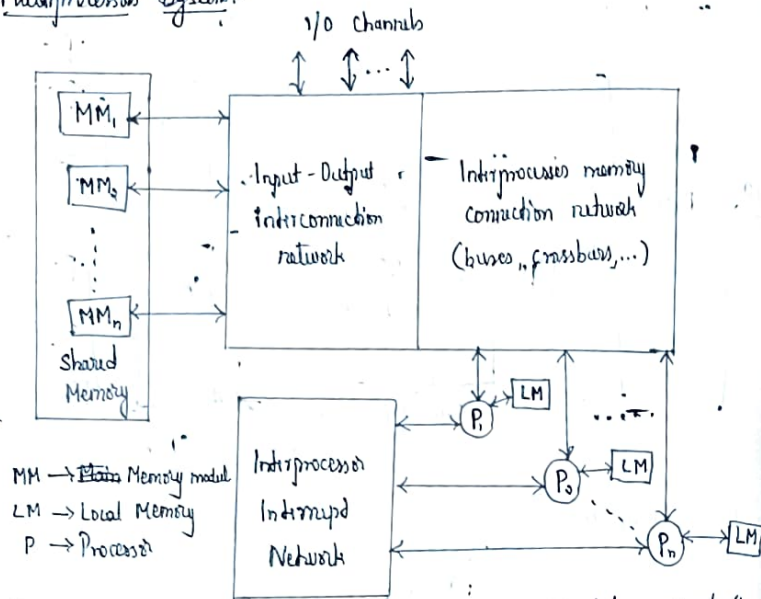 System.
I/O Channels
...
MM1
MM2
MMn
Shared
Memory
Input-Output
interconnection
network
Interprocesses memory
connection network
(buses, crossbars,...)
P1
LM
P2
LM
Pn
LM
Interprocessor
Interrupt
Network
MM → Main Memory modul
LM → Local Memory
P → Processor